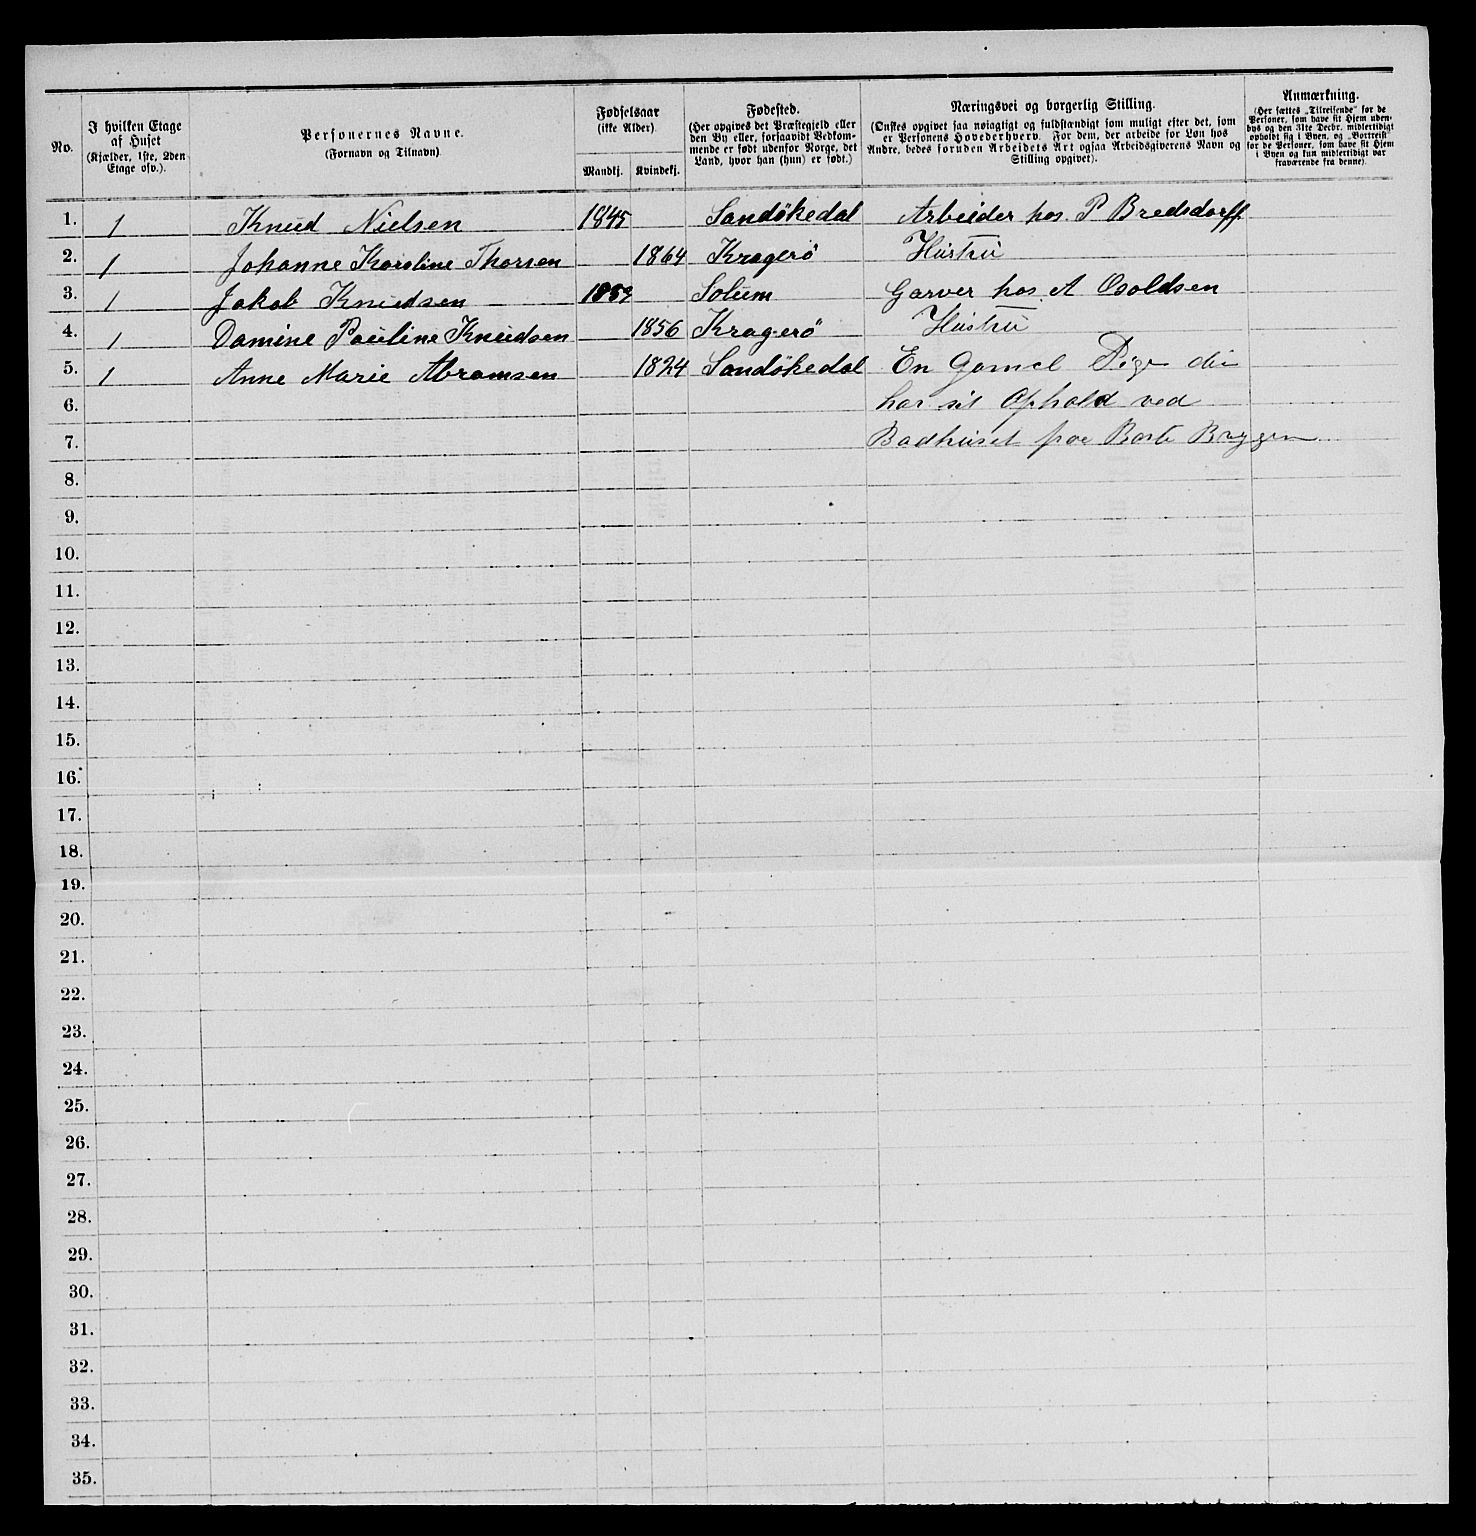 No.
I hvilken Etage
af Huset
(Kjælder, 1ste, 2den
Etage osv.).
Personernes Navne.
(Fornavn og Tilnavn).
Fødselsaar
(ikke Alder).
Mandkj. Kvindekj.
Fødested.
(Her opgives det Præstegjeld eller
den By eller, forsaavidt Vedkom-
mende er født udenfor Norge, det
Land, hvor han (hun) er født.)
Næringsvei og borgerlig Stilling.
(Ønskes opgivet saa nøiagtigt og fuldstændigt som muligt efter det, som
er Personens Hovederhverv. For dem, der arbeide for Løn hos
Andre, bedes foruden Arbeidets Art ogsaa Arbeidsgiverens Navn og
Stilling opgivet).
Anmærkning.
(Her sættes „Tilreisende“ for de
Personer, som have sit Hjem uden-
bys og den 31te Decbr. midlertidigt
opholdt sig i Byen, og „Bortreist“
for de Personer, som have sit Hjem
i Byen og kun midlertidigt var
fraværende fra denne).
1. 1 Knud Nielsen 1845 Sandökedal Arbeider hos. P Bredsdorff.
2. 1 Johanne Karoline Thorsen 1864 Kragerö Hustru
3. 1 Jakob Knudsen Solum Garver hos. A Osoldsen
4. 1 Damine Pauline Knudsen 1856 Kragerö Hustru
5. 1 Anne Marie Abramsen 1824 Sandökedal En Gamel Pige
6. har sit Ophold ved
7. Badhuset paa Bryggen
8.
9.
10.
11.
12.
13.
14.
15.
16.
17.
18.
19.
20.
21.
22.
23.
24.
25.
26.
27.
28.
29.
30.
31.
32.
33.
34.
35.